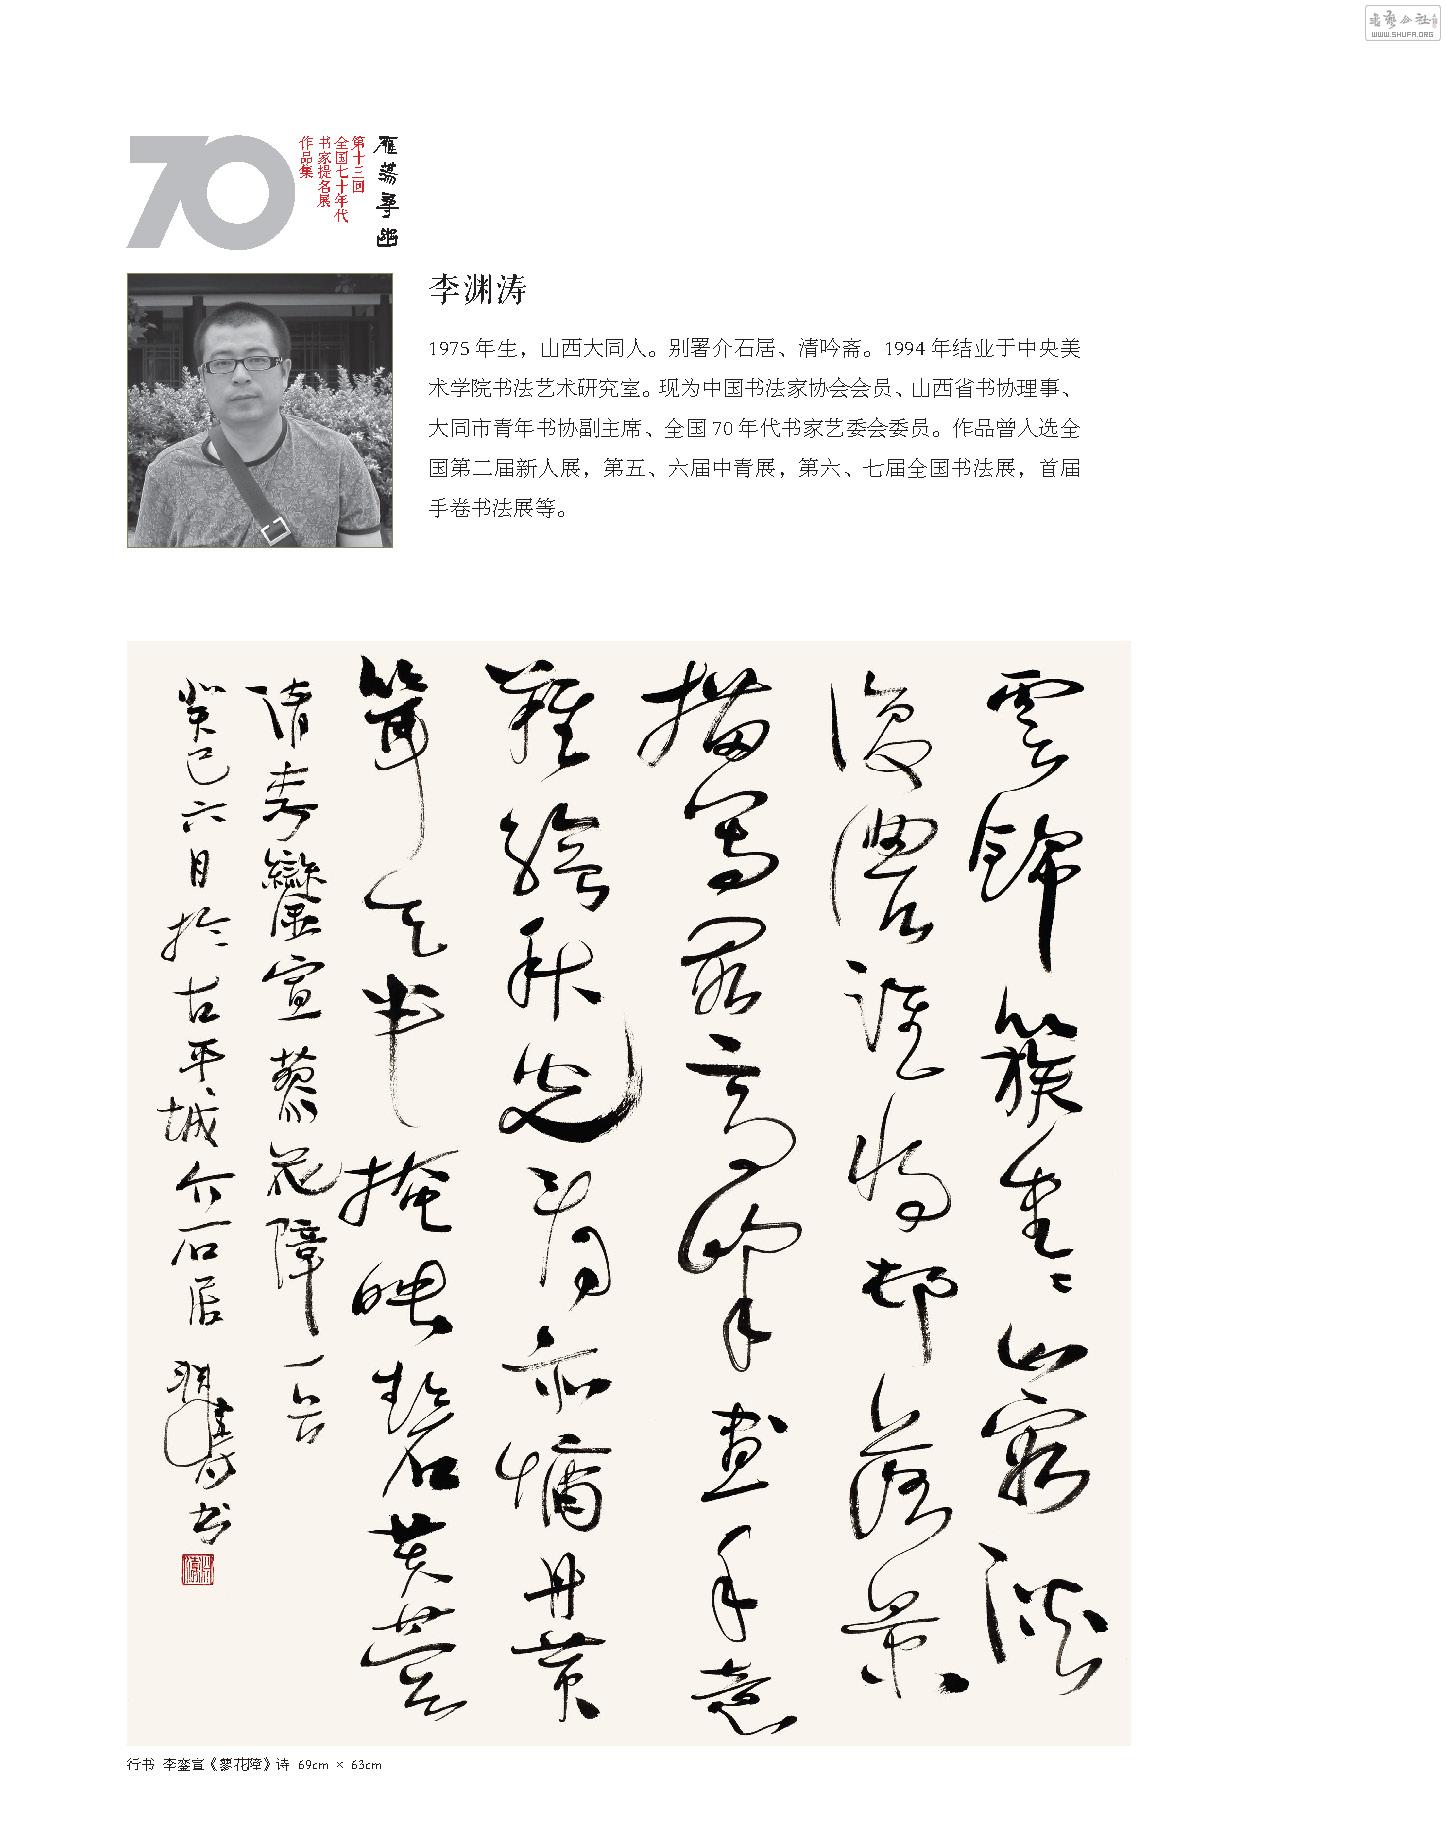 书艺公社
WWW.SHUFA.ORG
70
雁蕩尋幽
第十三回
全国七十年代
书家提名展
作品集
李渊涛
1975 年生，山西大同人。别署介石居、清吟斋。1994 年结业于中央美
术学院书法艺术研究室。现为中国书法家协会会员、山西省书协理事、
大同市青年书协副主席、全国 70 年代书家艺委会委员。作品曾入选全
国第二届新人展，第五、六届中青展，第六、七届全国书法展，首届
手卷书法展等。
雲錦簇重〻山容淡
復濃誰將邨落景
描寫最高峰画手意
難繪秋光看亦慵丹黄
聳天半掩映碧芙蓉
清李鑾宣蓼花障一首
癸巳六月於古平城介石居 淵濤书
行书 李銮宣《蓼花障》诗 69cm × 63cm